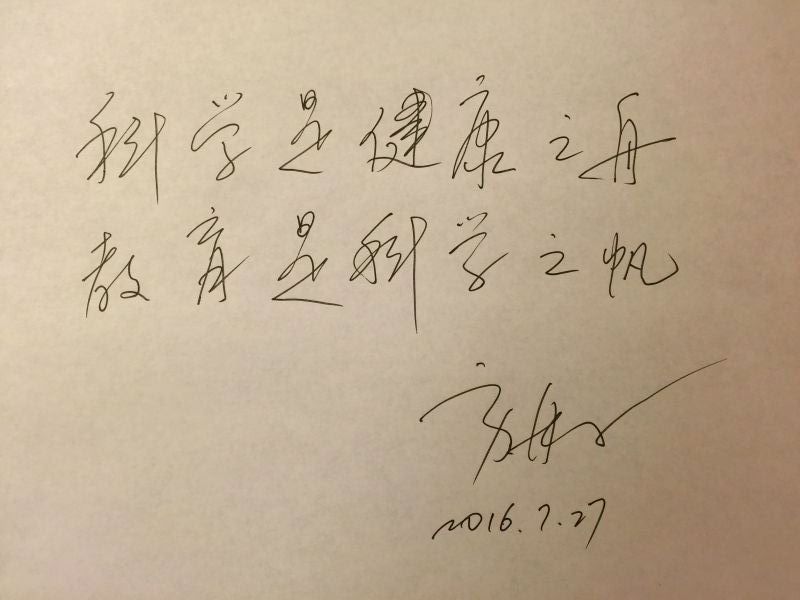 科学是健康之舟
教育是科学之帆
2016.7.27